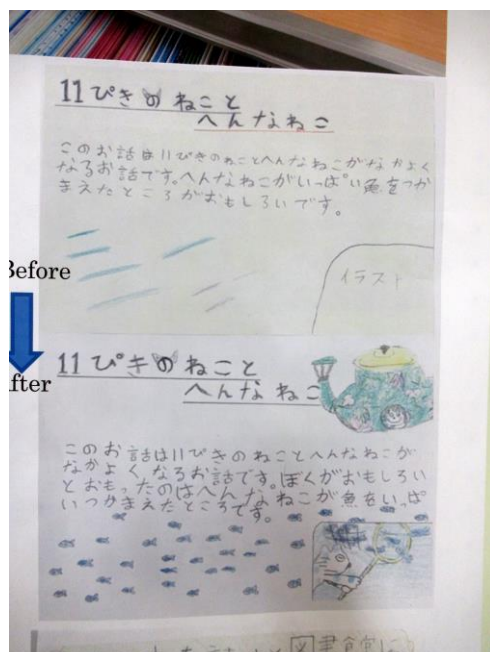 11ぴきのねこと
へんなねこ
このお話は11ぴきのねことへんなねこがなかよく
なるお話です。へんなねこがいっぱい魚をつか
まえたところがおもしろいです。
イラスト
Before
After
11ぴきのねこと
へんなねこ
このお話は11ぴきのねことへんなねこが
なかよくなるお話です。ぼくがおもしろい
とおもったのはへんなねこが魚をいっぱ
いつかまえたところです。